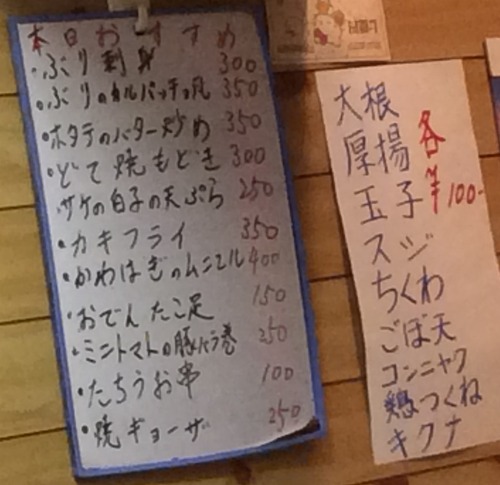 本日おすすめ
・ぶり刺身 300
・ぶりのカルパッチョ風 350
・ホタテのバター炒め 350
・どて焼もどき 300
サケの白子の天ぷら 250
・カキフライ 350
・かわはぎのムニエル 400
・おでんたこ足 150
・ミニトマトの豚バラ巻 250
・たちうお串 100
・焼ギョーザ 250
大根
厚揚
玉子
スジ
ちくわ
ごぼ天
コンニャク
鶏つくね
キクナ
各
¥100-